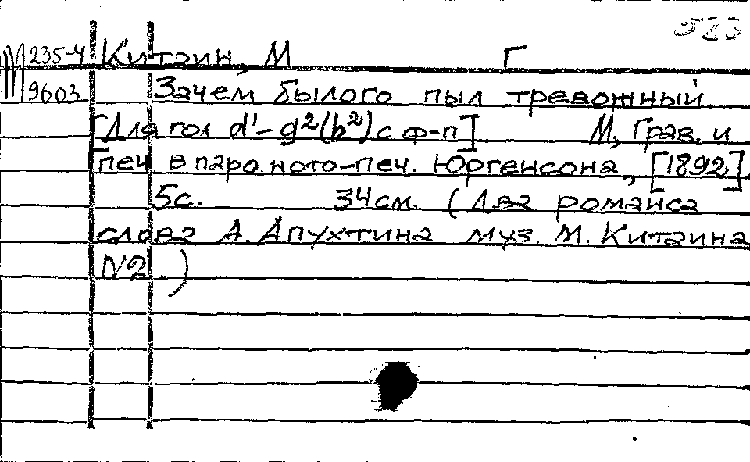 523
М 235-4 Китаин, М Г
9603 Зачем былого пыл тревожный
[Для гол d'-g²(b²) с ф-п] М, Грав. и
печ в паро ното-печ. Юргенсона, [1892].
5с. 34см. (Два романса
слова А. Апухтина муз. М. Китаина
N2.)